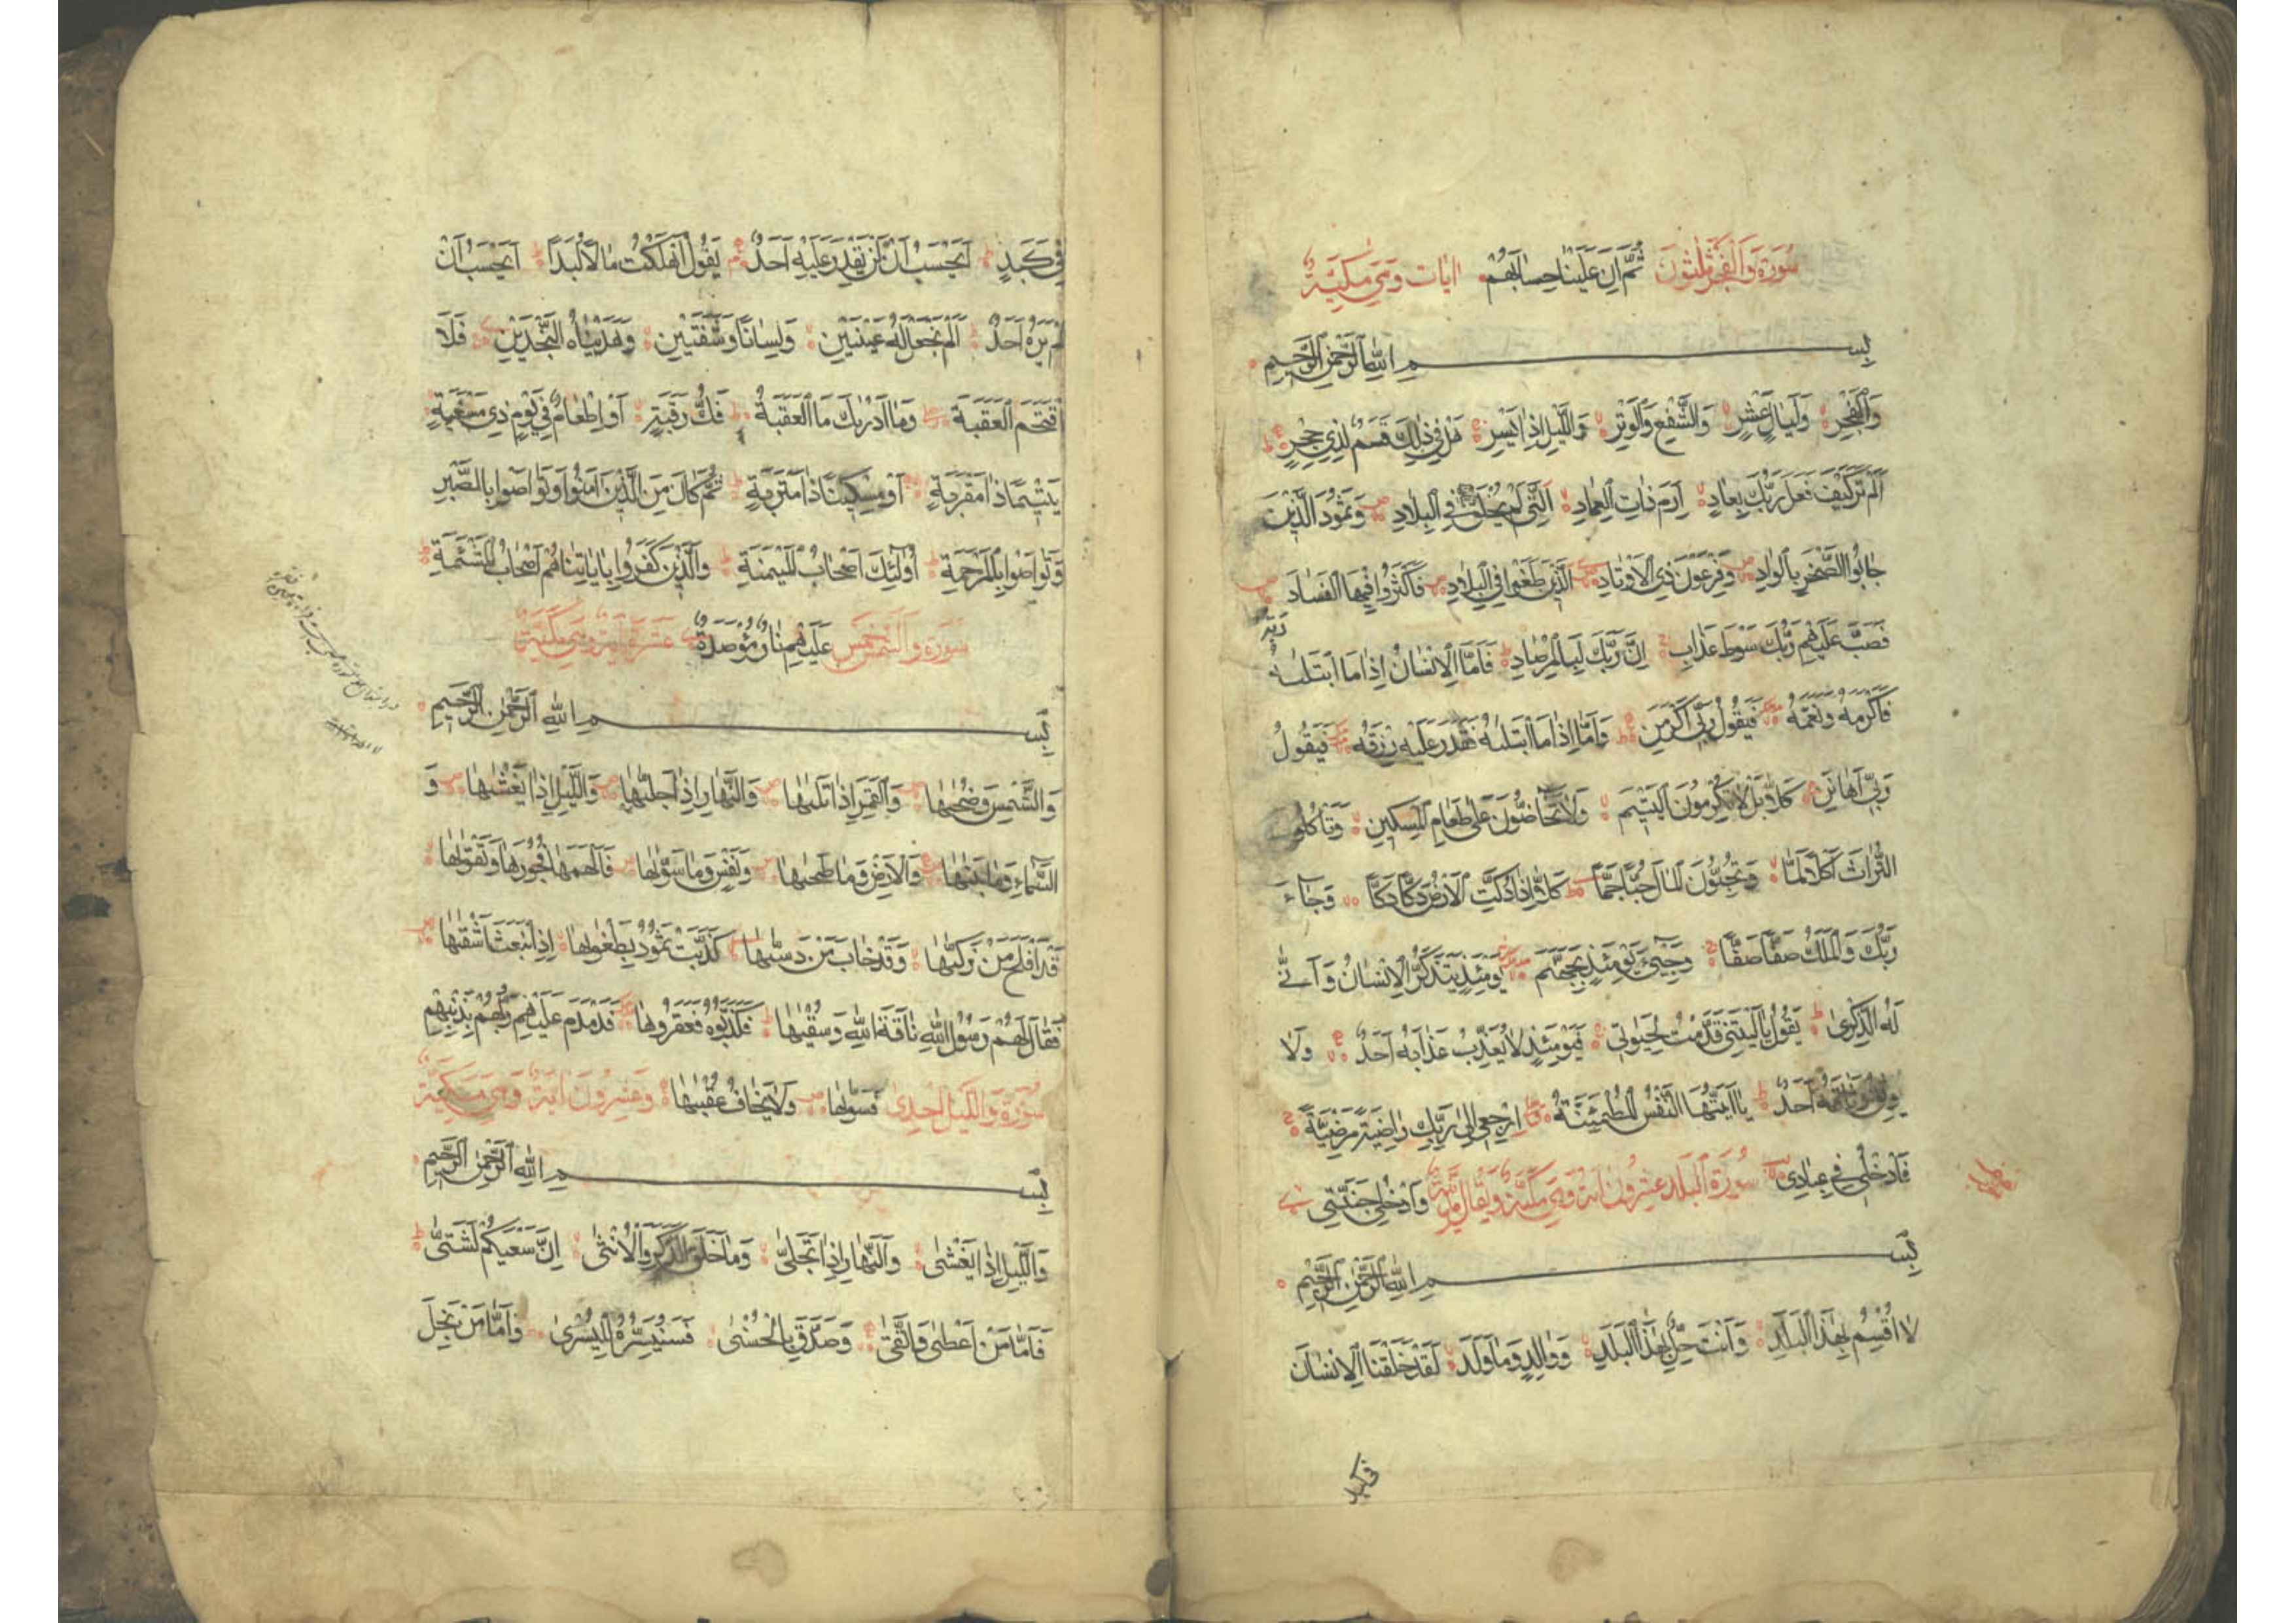 سُورَةُ وَالْفَجْرِ ثَلٰثُونَ ثُمَّ اِنَّ عَلَيْنَا حِسَابَهُمْ اٰيَات وَهِيَ مَكِّيَّةٌ
بِسْمِ اللّٰهِ الرَّحْمٰنِ الرَّحِيمِ
وَالْفَجْرِ وَلَيَالٍ عَشْرٍ وَالشَّفْعِ وَالْوَتْرِ وَالَّيْلِ اِذَا يَسْرِ هَلْ فِي ذٰلِكَ قَسَمٌ لِذِي حِجْرٍ
اَلَمْ تَرَ كَيْفَ فَعَلَ رَبُّكَ بِعَادٍ اِرَمَ ذَاتِ الْعِمَادِ الَّتِي لَمْ يُخْلَقْ فِي الْبِلَادِ وَثَمُودَ الَّذِينَ
جَابُوا الصَّخْرَ بِالْوَادِ وَفِرْعَوْنَ ذِي الْاَوْتَادِ الَّذِينَ طَغَوْا فِي الْبِلَادِ فَاَكْثَرُوا فِيهَا الْفَسَادَ
فَصَبَّ عَلَيْهِمْ رَبُّكَ سَوْطَ عَذَابٍ اِنَّ رَبَّكَ لَبِالْمِرْصَادِ فَاَمَّا الْاِنْسَانُ اِذَا مَا ابْتَلٰىهُ رَبُّهُ
فَاَكْرَمَهُ وَنَعَّمَهُ فَيَقُولُ رَبِّي اَكْرَمَنِ وَاَمَّا اِذَا مَا ابْتَلٰىهُ فَقَدَرَ عَلَيْهِ رِزْقَهُ فَيَقُولُ
رَبِّي اَهَانَنِ كَلَّا بَلْ لَا تُكْرِمُونَ الْيَتِيمَ وَلَا تَحَاضُّونَ عَلٰى طَعَامِ الْمِسْكِينِ وَتَاْكُلُونَ
التُّرَاثَ اَكْلًا لَمًّا وَتُحِبُّونَ الْمَالَ حُبًّا جَمًّا كَلَّا اِذَا دُكَّتِ الْاَرْضُ دَكًّا دَكًّا وَجَاءَ
رَبُّكَ وَالْمَلَكُ صَفًّا صَفًّا وَجِيءَ يَوْمَئِذٍ بِجَهَنَّمَ يَوْمَئِذٍ يَتَذَكَّرُ الْاِنْسَانُ وَاَنّٰى
لَهُ الذِّكْرٰى يَقُولُ يَا لَيْتَنِي قَدَّمْتُ لِحَيٰوتِي فَيَوْمَئِذٍ لَا يُعَذِّبُ عَذَابَهُ اَحَدٌ وَلَا
يُوثِقُ وَثَاقَهُ اَحَدٌ يَا اَيَّتُهَا النَّفْسُ الْمُطْمَئِنَّةُ ارْجِعِي اِلٰى رَبِّكِ رَاضِيَةً مَرْضِيَّةً
فَادْخُلِي فِي عِبَادِي سُورَةُ الْبَلَدِ عِشْرُونَ اٰيَةً وَهِيَ مَكِّيَّةٌ وَيُقَالُ مَدَنِيَّةٌ وَادْخُلِي جَنَّتِي
بِسْمِ اللّٰهِ الرَّحْمٰنِ الرَّحِيمِ
لَا اُقْسِمُ بِهٰذَا الْبَلَدِ وَاَنْتَ حِلٌّ بِهٰذَا الْبَلَدِ وَوَالِدٍ وَمَا وَلَدَ لَقَدْ خَلَقْنَا الْاِنْسَانَ
فى كبد
فِي كَبَدٍ اَيَحْسَبُ اَنْ لَنْ يَقْدِرَ عَلَيْهِ اَحَدٌ يَقُولُ اَهْلَكْتُ مَالًا لُبَدًا اَيَحْسَبُ اَنْ
لَمْ يَرَهُ اَحَدٌ اَلَمْ نَجْعَلْ لَهُ عَيْنَيْنِ وَلِسَانًا وَشَفَتَيْنِ وَهَدَيْنَاهُ النَّجْدَيْنِ فَلَا
اقْتَحَمَ الْعَقَبَةَ وَمَا اَدْرٰىكَ مَا الْعَقَبَةُ فَكُّ رَقَبَةٍ اَوْ اِطْعَامٌ فِي يَوْمٍ ذِي مَسْغَبَةٍ
يَتِيمًا ذَا مَقْرَبَةٍ اَوْ مِسْكِينًا ذَا مَتْرَبَةٍ ثُمَّ كَانَ مِنَ الَّذِينَ اٰمَنُوا وَتَوَاصَوْا بِالصَّبْرِ
وَتَوَاصَوْا بِالْمَرْحَمَةِ اُولٰئِكَ اَصْحَابُ الْمَيْمَنَةِ وَالَّذِينَ كَفَرُوا بِاٰيَاتِنَا هُمْ اَصْحَابُ الْمَشْئَمَةِ
سُورَةُ وَالشَّمْسِ خَمْسَ عَلَيْهِمْ نَارٌ مُؤْصَدَةٌ عَشْرَةَ اٰيَةً وَهِيَ مَكِّيَّةٌ
بِسْمِ اللّٰهِ الرَّحْمٰنِ الرَّحِيمِ
وَالشَّمْسِ وَضُحٰىهَا وَالْقَمَرِ اِذَا تَلٰىهَا وَالنَّهَارِ اِذَا جَلّٰىهَا وَالَّيْلِ اِذَا يَغْشٰىهَا وَ
السَّمَاءِ وَمَا بَنٰىهَا وَالْاَرْضِ وَمَا طَحٰىهَا وَنَفْسٍ وَمَا سَوّٰىهَا فَاَلْهَمَهَا فُجُورَهَا وَتَقْوٰىهَا
قَدْ اَفْلَحَ مَنْ زَكّٰىهَا وَقَدْ خَابَ مَنْ دَسّٰىهَا كَذَّبَتْ ثَمُودُ بِطَغْوٰىهَا اِذِ انْبَعَثَ اَشْقٰىهَا
فَقَالَ لَهُمْ رَسُولُ اللّٰهِ نَاقَةَ اللّٰهِ وَسُقْيٰهَا فَكَذَّبُوهُ فَعَقَرُوهَا فَدَمْدَمَ عَلَيْهِمْ رَبُّهُمْ بِذَنْبِهِمْ
سُورَةُ وَالَّيْلِ اِحْدٰى فَسَوّٰىهَا وَلَا يَخَافُ عُقْبٰىهَا وَعِشْرُونَ اٰيَةً وَهِيَ مَكِّيَّةٌ
بِسْمِ اللّٰهِ الرَّحْمٰنِ الرَّحِيمِ
وَالَّيْلِ اِذَا يَغْشٰى وَالنَّهَارِ اِذَا تَجَلّٰى وَمَا خَلَقَ الذَّكَرَ وَالْاُنْثٰى اِنَّ سَعْيَكُمْ لَشَتّٰى
فَاَمَّا مَنْ اَعْطٰى وَاتَّقٰى وَصَدَّقَ بِالْحُسْنٰى فَسَنُيَسِّرُهُ لِلْيُسْرٰى وَاَمَّا مَنْ بَخِلَ